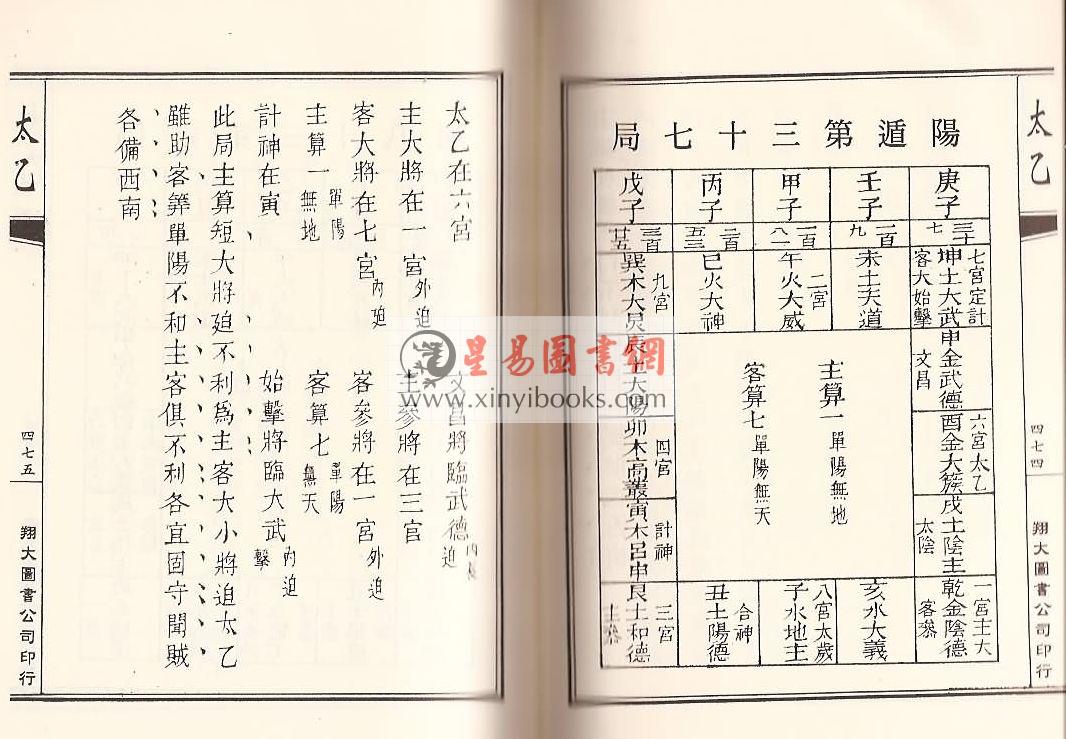 太乙
四七四
翔大圖書公司印行
陽遁第三十七局
庚子
三十七
壬子
一百九
甲子
一百八一
丙子
二百五三
戊子
三百廿五
七宮定計
坤土大武
客大始擊
未土天道
二宮
午火大威
巳火大神
九宮
巽木大炅
申金武德
文昌
辰土太陽
六宮太乙
酉金大簇
四宮
卯木高叢
戌土陰主
太陰
計神
寅木呂申
一宮主大
乾金陰德
客參
亥水大義
八宮太歲
子水地主
合神
丑土陽德
三宮
艮土和德
主參
主算一單陽無地
客算七單陽無天
星易圖書網
www.xinyibooks.com
太乙在六宮
文昌將臨武德
主大將在一宮外迫
主參將在三宮
客大將在七宮內迫
客參將在一宮外迫
主算一單陽無地
客算七單陽無天
計神在寅
始擊將臨大武內迫擊
此局主算短大將迫不利為主客大小將迫太乙
雖助客算單陽不和主客俱不利各宜固守聞賊
各備西南
太乙
四七五
翔大圖書公司印行